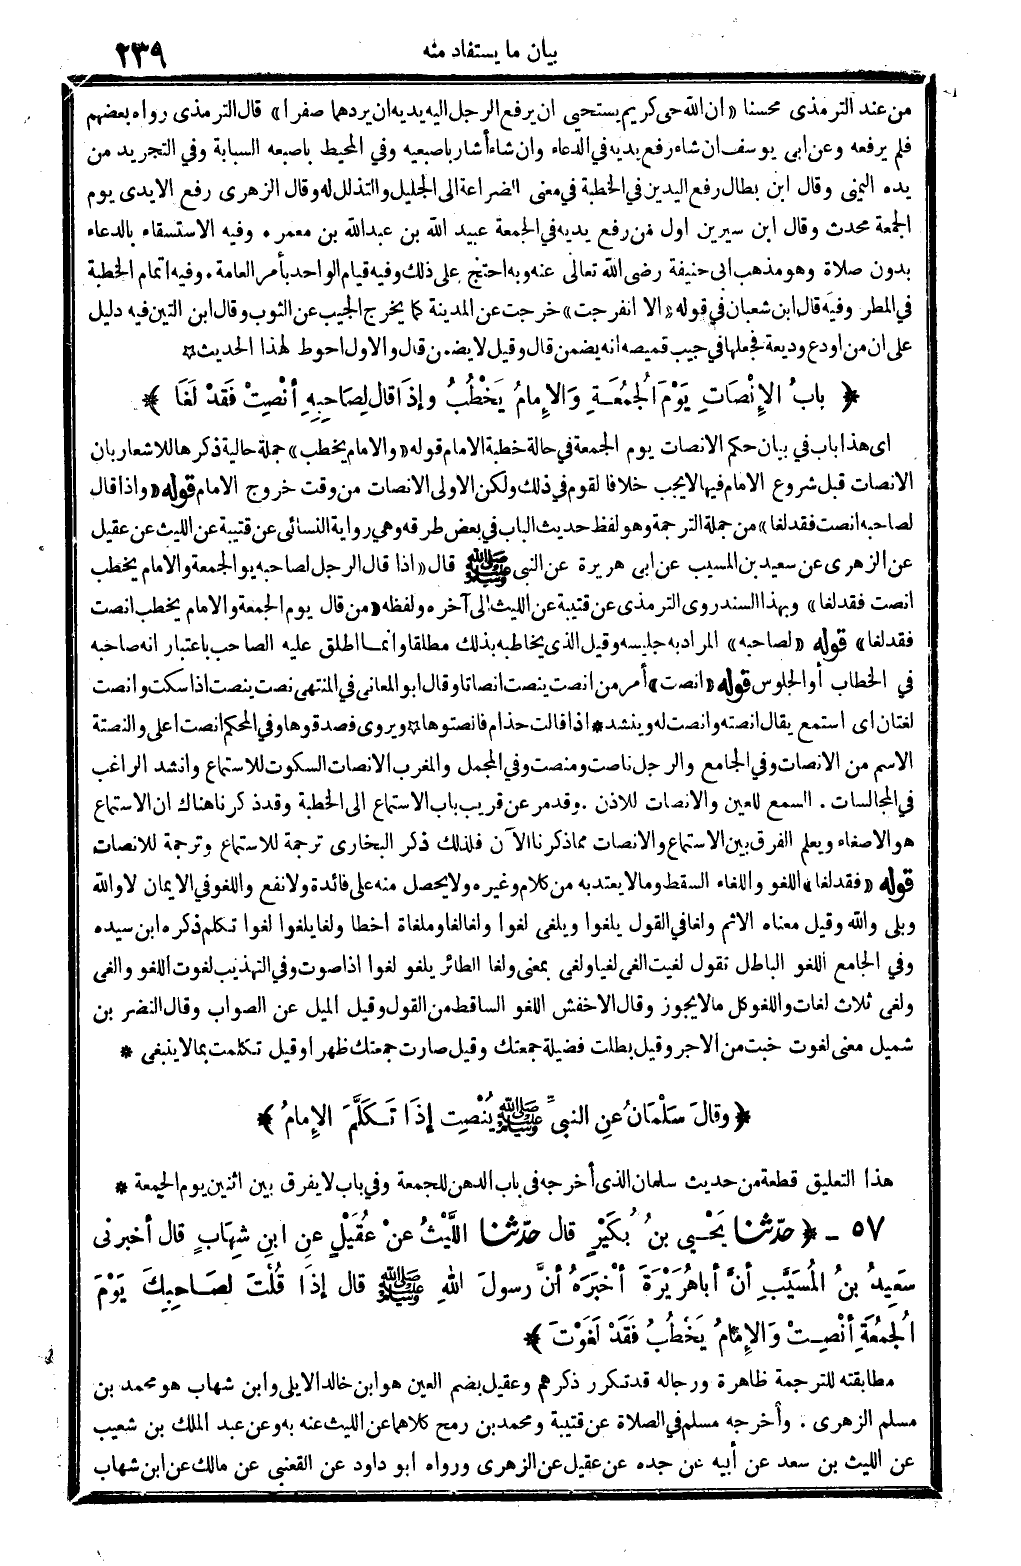 بيان ما يستفاد منه ٢٣٩
من عند الترمذى محسنا «ان الله حى كريم يستحيى ان يرفع الرجل اليه يديه ان يردهما صفرا» قال الترمذى رواه بعضهم
فلم يرفعه وعن ابى يوسف ان شاء رفع يديه فى الدعاء وان شاء أشار باصبعيه وفي المحيط باصبعه السبابة وفي التجريد من
يده اليمنى وقال ابن بطال رفع اليدين في الخطبة في معنى الضراعة الى الجليل والتذلل له وقال الزهرى رفع الايدى يوم
الجمعة محدث وقال ابن سيرين اول من رفع يديه في الجمعة عبيد الله بن عبدالله بن معمر ٠ وفيه الاستسقاء بالدعاء
بدون صلاة وهو مذهب ابى حنيفة رضى الله تعالى عنه وبه احتج على ذلك وفيه قيام الواحد بأمر العامة ٠ وفيه اتمام الخطبة
في المطر وفيه قال ابن شعبان في قوله «الا انفرجت» خرجت عن المدينة كما يخرج الجيب عن الثوب وقال ابن التين فيه دليل
على ان من اودع وديعة فجعلها في جيب قميصه انه يضمن قال وقيل لا يضمن قال والاول احوط لهذا الحديث ☆
﴿ بابُ الإِنْصَاتِ يَوْمَ الجُمُعَةِ وَالإِمامُ يَخْطُبُ وإذَا قال لِصَاحِبِهِ أنْصِتْ فَقَدْ لَغَا ﴾
اى هذا باب في بيان حكم الانصات يوم الجمعة في حالة خطبة الامام قوله «والامام يخطب» جملة حالية ذكرها للاشعار بان
الانصات قبل شروع الامام فيها لايجب خلافا لقوم في ذلك ولكن الاولى الانصات من وقت خروج الامام قوله «واذا قال
لصاحبه انصت فقد لغا» من جملة الترجمة وهو لفظ حديث الباب في بعض طرقه وهي رواية النسائى عن قتيبة عن الليث عن عقيل
عن الزهرى عن سعيد بن المسيب عن ابى هريرة عن النبى ﷺ قال «اذا قال الرجل لصاحبه يوم الجمعة والامام يخطب
انصت فقد لغا» وبهذا السند روى الترمذى عن قتيبة عن الليث الى آخره ولفظه «من قال يوم الجمعة والامام يخطب انصت
فقد لغا» قوله «لصاحبه» المراد به جليسه وقيل الذى يخاطبه بذلك مطلقا وانما اطلق عليه الصاحب باعتبار انه صاحبه
في الخطاب أو الجلوس قوله «انصت» أمر من انصت ينصت انصاتا وقال ابو المعانى في المنتهى نصت ينصت اذا سكت وانصت
لغتان اى استمع يقال انصته وانصت له وينشد * اذا قالت حذام فانصتوها ☆ ويروى فصدقوها وفي المحكم انصت اعلى والنصتة
الاسم من الانصات وفي الجامع والرجل ناصت ومنصت وفي المجمل والمغرب الانصات السكوت للاستماع وانشد الراغب
في المجالسات ٠ السمع للعين والانصات للاذن ٠ وقد مر عن قريب باب الاستماع الى الخطبة وقد ذكرنا هناك ان الاستماع
هو الاصغاء ويعلم الفرق بين الاستماع والانصات مما ذكرنا الآن فلذلك ذكر البخارى ترجمة للاستماع وترجمة للانصات
قوله «فقد لغا» اللغو واللغاء السقط وما لا يعتد به من كلام وغيره ولا يحصل منه على فائدة ولا نفع واللغو في الايمان لا والله
وبلى والله وقيل معناه الاثم ولغا في القول يلغوا ويلغى لغوا ولغا لغا وملغاة اخطا ولغا يلغوا لغوا تكلم ذكره ابن سيده
وفي الجامع اللغو الباطل تقول لغيت الغى لغيا ولغى بمعنى ولغا الطائر يلغو لغوا اذا صوت وفي التهذيب لغوت اللغو والغى
ولغى ثلاث لغات واللغو كل مالا يجوز وقال الاخفش اللغو الساقط من القول وقيل الميل عن الصواب وقال النضر بن
شميل معنى لغوت خبت من الاجر وقيل بطلت فضيلة جمعتك وقيل صارت جمعتك ظهرا وقيل تكلمت بما لا ينبغى *
﴿ وقالَ سَلْمَانُ عنِ النبيِّ ﷺ يُنْصِت إذَا تَكَلَّمَ الإِمامُ ﴾
هذا التعليق قطعة من حديث سلمان الذى أخرجه فى باب الدهن للجمعة وفي باب لا يفرق بين اثنين يوم الجمعة *
٥٧ ـ ﴿ حدّثنا يَحْيى بنُ بُكَيْرٍ قال حدّثنا اللَّيْثُ عنْ عُقَيْلٍ عنِ ابنِ شِهَابٍ قال أخبرنى
سَعِيدُ بنُ المُسَيَّبِ أنَّ أباهُرَيْرَةَ أخْبَرَهُ أنَّ رسولَ اللهِ ﷺ قال إذَا قُلْتَ لِصَاحِبِكَ يَوْمَ
الجُمُعَةِ أنْصِتْ وَالإِمَامُ يَخْطُبُ فَقَدْ لَغَوْتَ ﴾
مطابقته للترجمة ظاهرة ورجاله قد تكرر ذكرهم وعقيل بضم العين هو ابن خالد الايلى وابن شهاب هو محمد بن
مسلم الزهرى ٠ وأخرجه مسلم في الصلاة عن قتيبة ومحمد بن رمح كلاهما عن الليث عنه به وعن عبد الملك بن شعيب
عن الليث بن سعد عن أبيه عن جده عن عقيل عن الزهرى ورواه ابو داود عن القعنبي عن مالك عن ابن شهاب